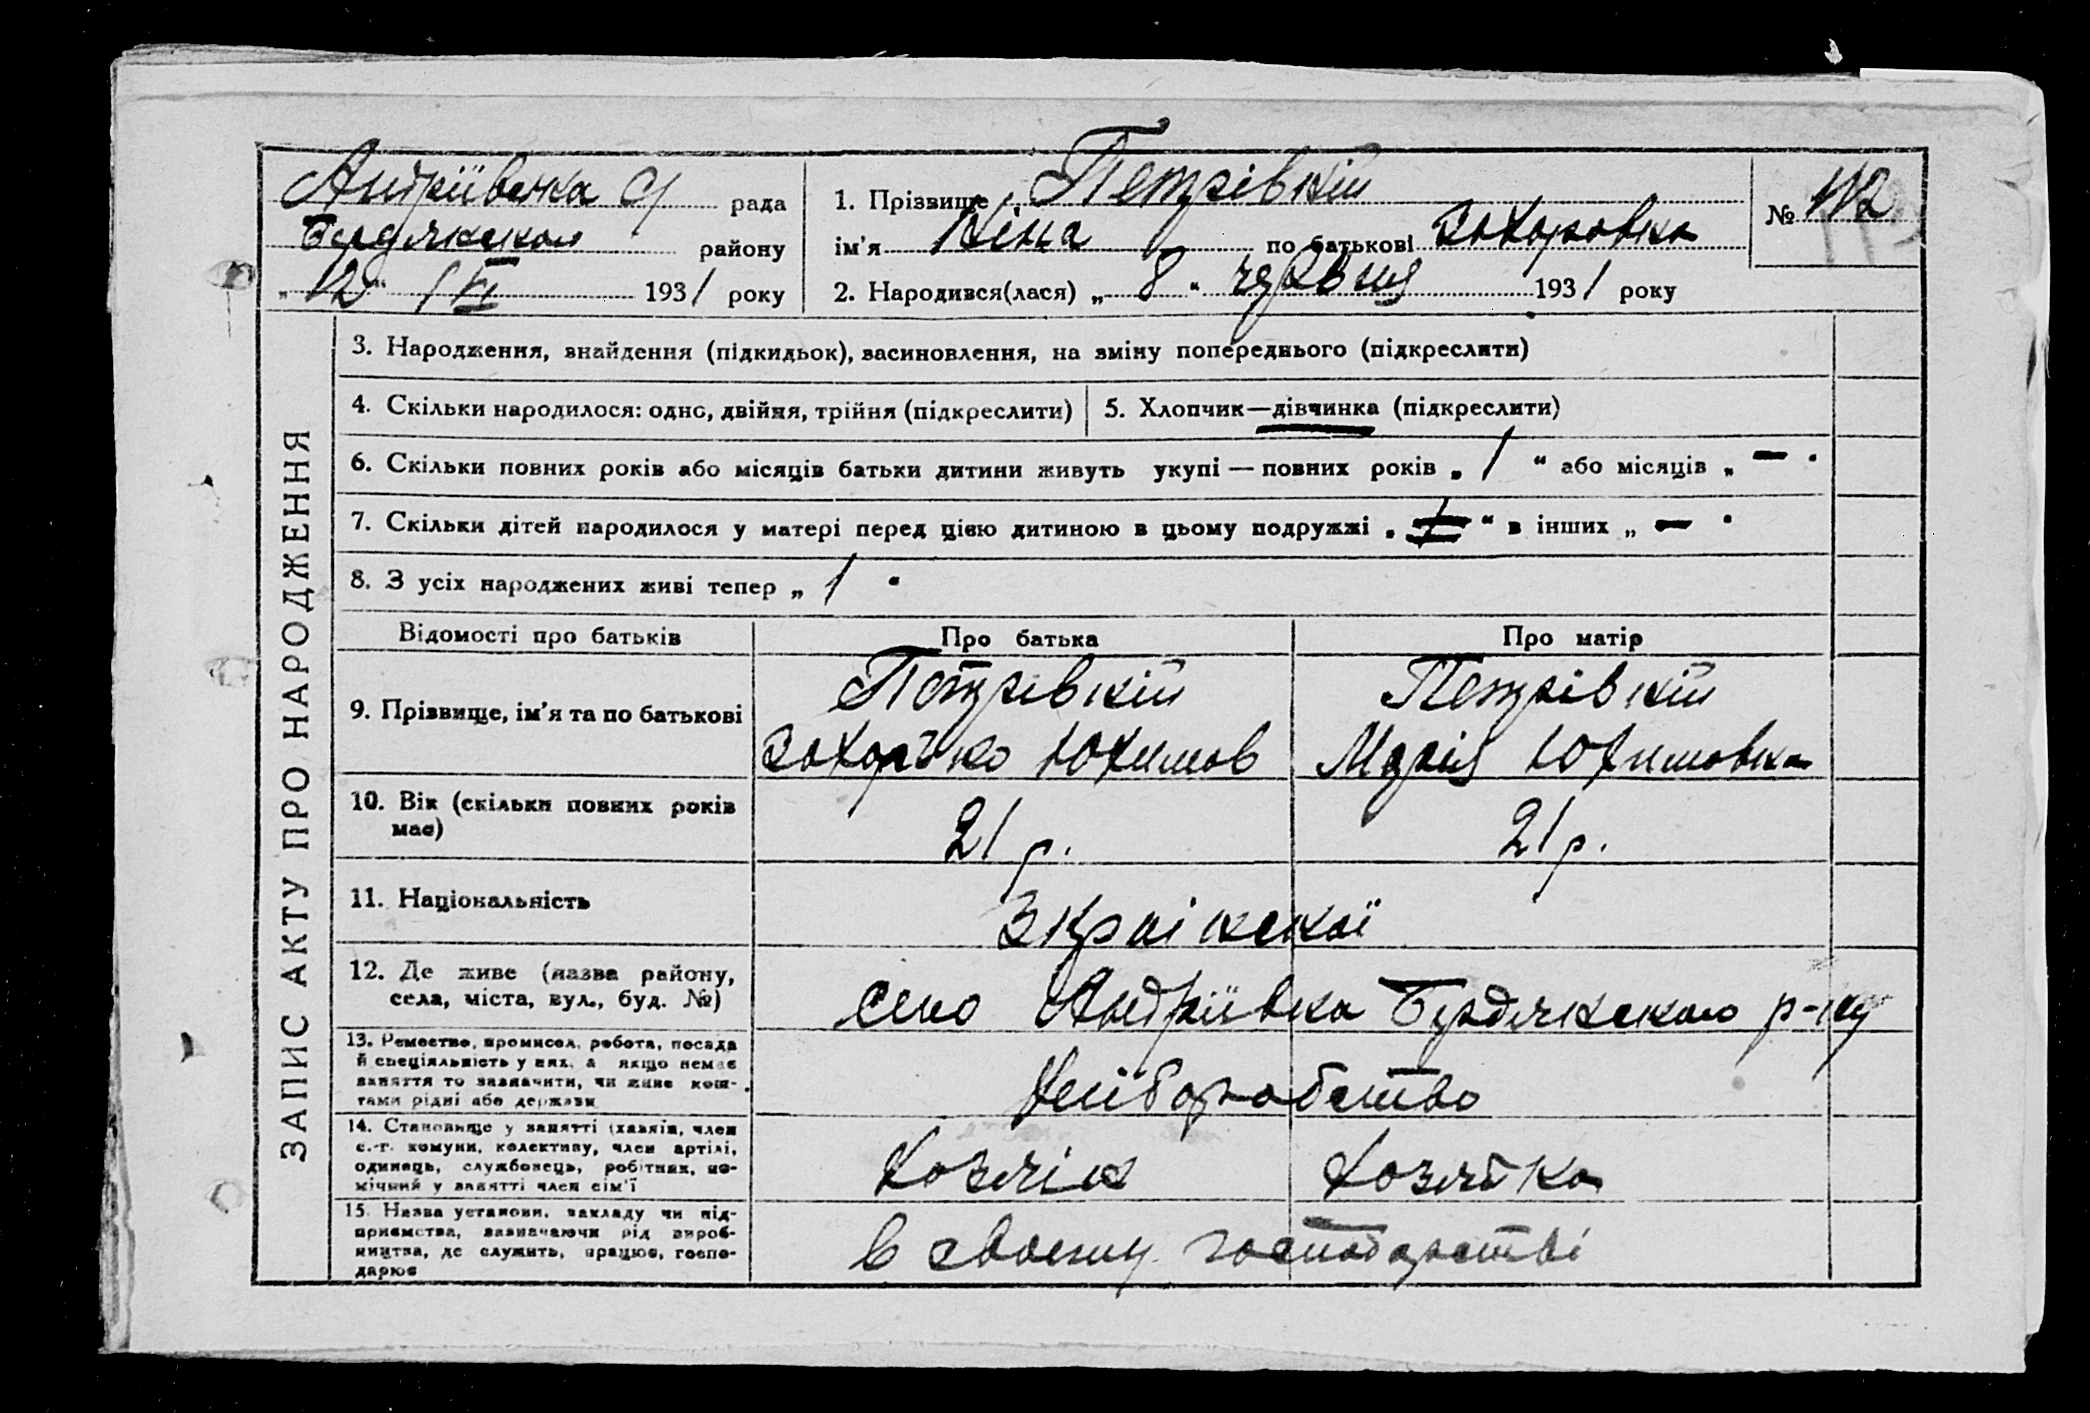 Андріївська С/ рада
Бердянского району
„ 12 “ / VI 1931 року
1. Прізвище Петрівкій
ім'я Ніна по батькові Захаровна
2. Народився(лася) „ 8 “ червня 1931 року
№ 112
ЗАПИС АКТУ ПРО НАРОДЖЕННЯ
3. Народження, знайдення (підкидьок), засиновлення, на зміну попереднього (підкреслити)
4. Скільки народилося: одно, двійня, трійня (підкреслити)
5. Хлопчик—дівчинка (підкреслити)
6. Скільки повних років або місяців батьки дитини живуть укупі — повних років „ 1 “ або місяців „ — “
7. Скільки дітей народилося у матері перед цією дитиною в цьому подружжі „ “ в інших „ — “
8. З усіх народжених живі тепер „ 1 “
Відомості про батьків Про батька Про матір
9. Прізвище, ім'я та по батькові
Петрівкій
Юхимов
Петрівкій
Марія Юхимовна
10. Вік (скільки повних років
має)
21 р.
21 р.
11. Національність
12. Де живе (назва району,
села, міста, вул., буд. №)
село Андріївка Бердянского р-ну
13. Ремество, промисел, робота, посада
й спеціяльність у них, а якщо немає
заняття то зазначити, чи живе кош-
тами рідні або держави
хліборобство
14. Становище у занятті (хазяїн, член
с.-г. комуни, колективу, член артілі,
одинець, службовець, робітник, по-
мічний у занятті член сім'ї
хозяін
хозяйка
15. Назва установи, закладу чи під-
приємства, зазначаючи рід вироб-
ництва, де служить, працює, госпо-
дарює
в своему господарстві